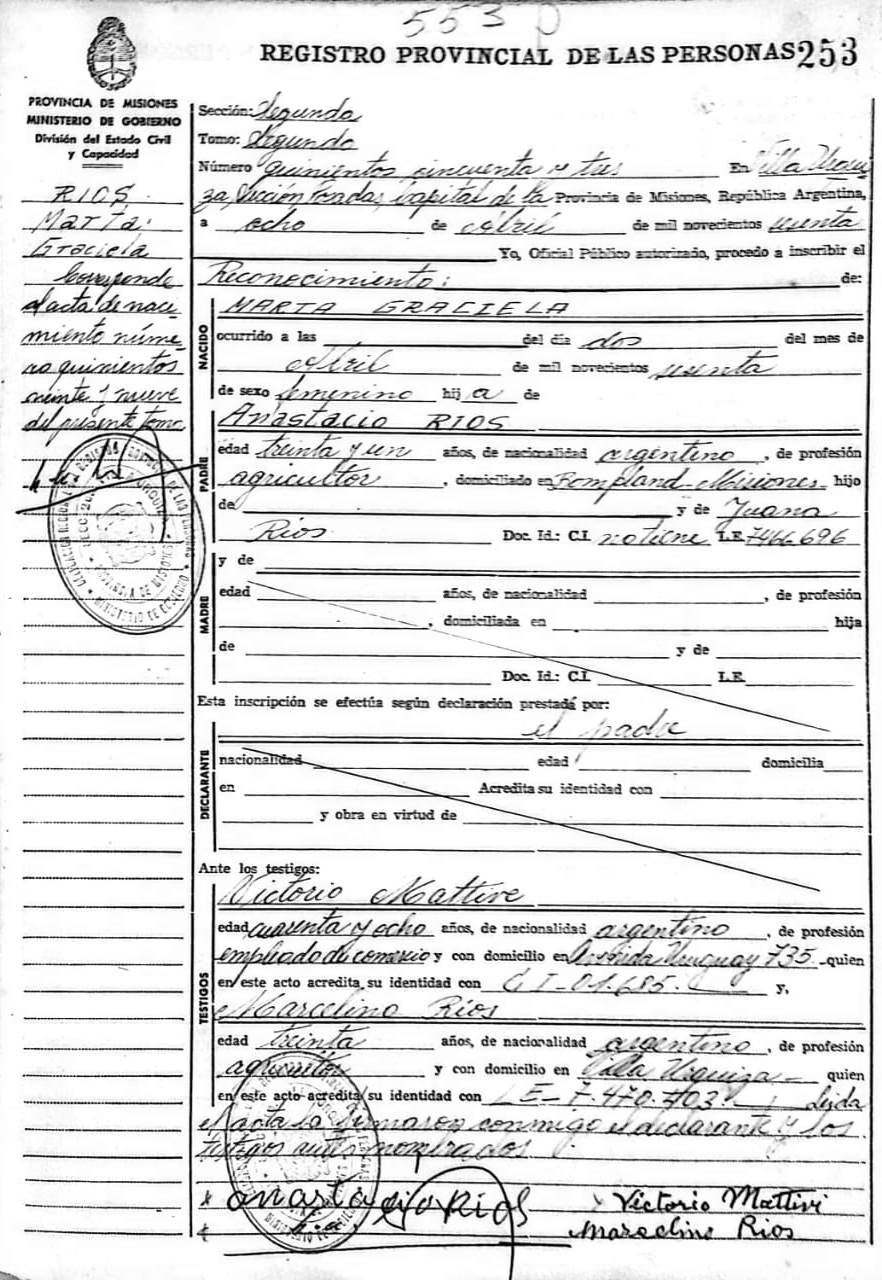 553 p
REGISTRO PROVINCIAL DE LAS PERSONAS 253
PROVINCIA DE MISIONES
MINISTERIO DE GOBIERNO
División del Estado Civil
y Capacidad
RIOS,
Marta
Graciela
Corresponde
al acta de naci
miento núme
ro quinientos
veinte y nueve
del presente tomo
Sección: Segunda
Tomo: Segundo
Número quinientos cincuenta y tres En Villa Urqui
za, Sección Posadas, Capital de la Provincia de Misiones, República Argentina,
a ocho de Abril de mil novecientos sesenta
Yo, Oficial Público autorizado, procedo a inscribir el
Reconocimiento: de:
NACIDO
MARTA GRACIELA
ocurrido a las del día dos del mes de
Abril de mil novecientos sesenta
de sexo femenino hija de
PADRE
Anastacio RIOS
edad treinta y un años, de nacionalidad argentino, de profesión
agricultor, domiciliado en Bompland-Misiones- hijo
de y de Juana
Rios Doc. Id.: C.I. no tiene L.E. 7466696
MADRE
y de
edad años, de nacionalidad, de profesión
, domiciliada en hija
de y de
Doc. Id.: C.I. L.E.
Esta inscripción se efectúa según declaración prestada por:
el padre
DECLARANTE
nacionalidad edad domicilia
en Acredita su identidad con
y obra en virtud de
Ante los testigos:
TESTIGOS
Victorio Mattive
edad cuarenta y ocho años, de nacionalidad argentino, de profesión
empleado de comercio y con domicilio en Avenida Uruguay 735- quien
en este acto acredita su identidad con C I-01.685.- y,
Marcelino Rios
edad treinta años, de nacionalidad argentino, de profesión
agricultor y con domicilio en Villa Urquiza- quien
en este acto acredita su identidad con LE-7.470.703.- Leída
el acta la firmaron conmigo el declarante y los
testigos antes nombrados
x anastacio Rios x Victorio Mattivi
Marcelino Rios